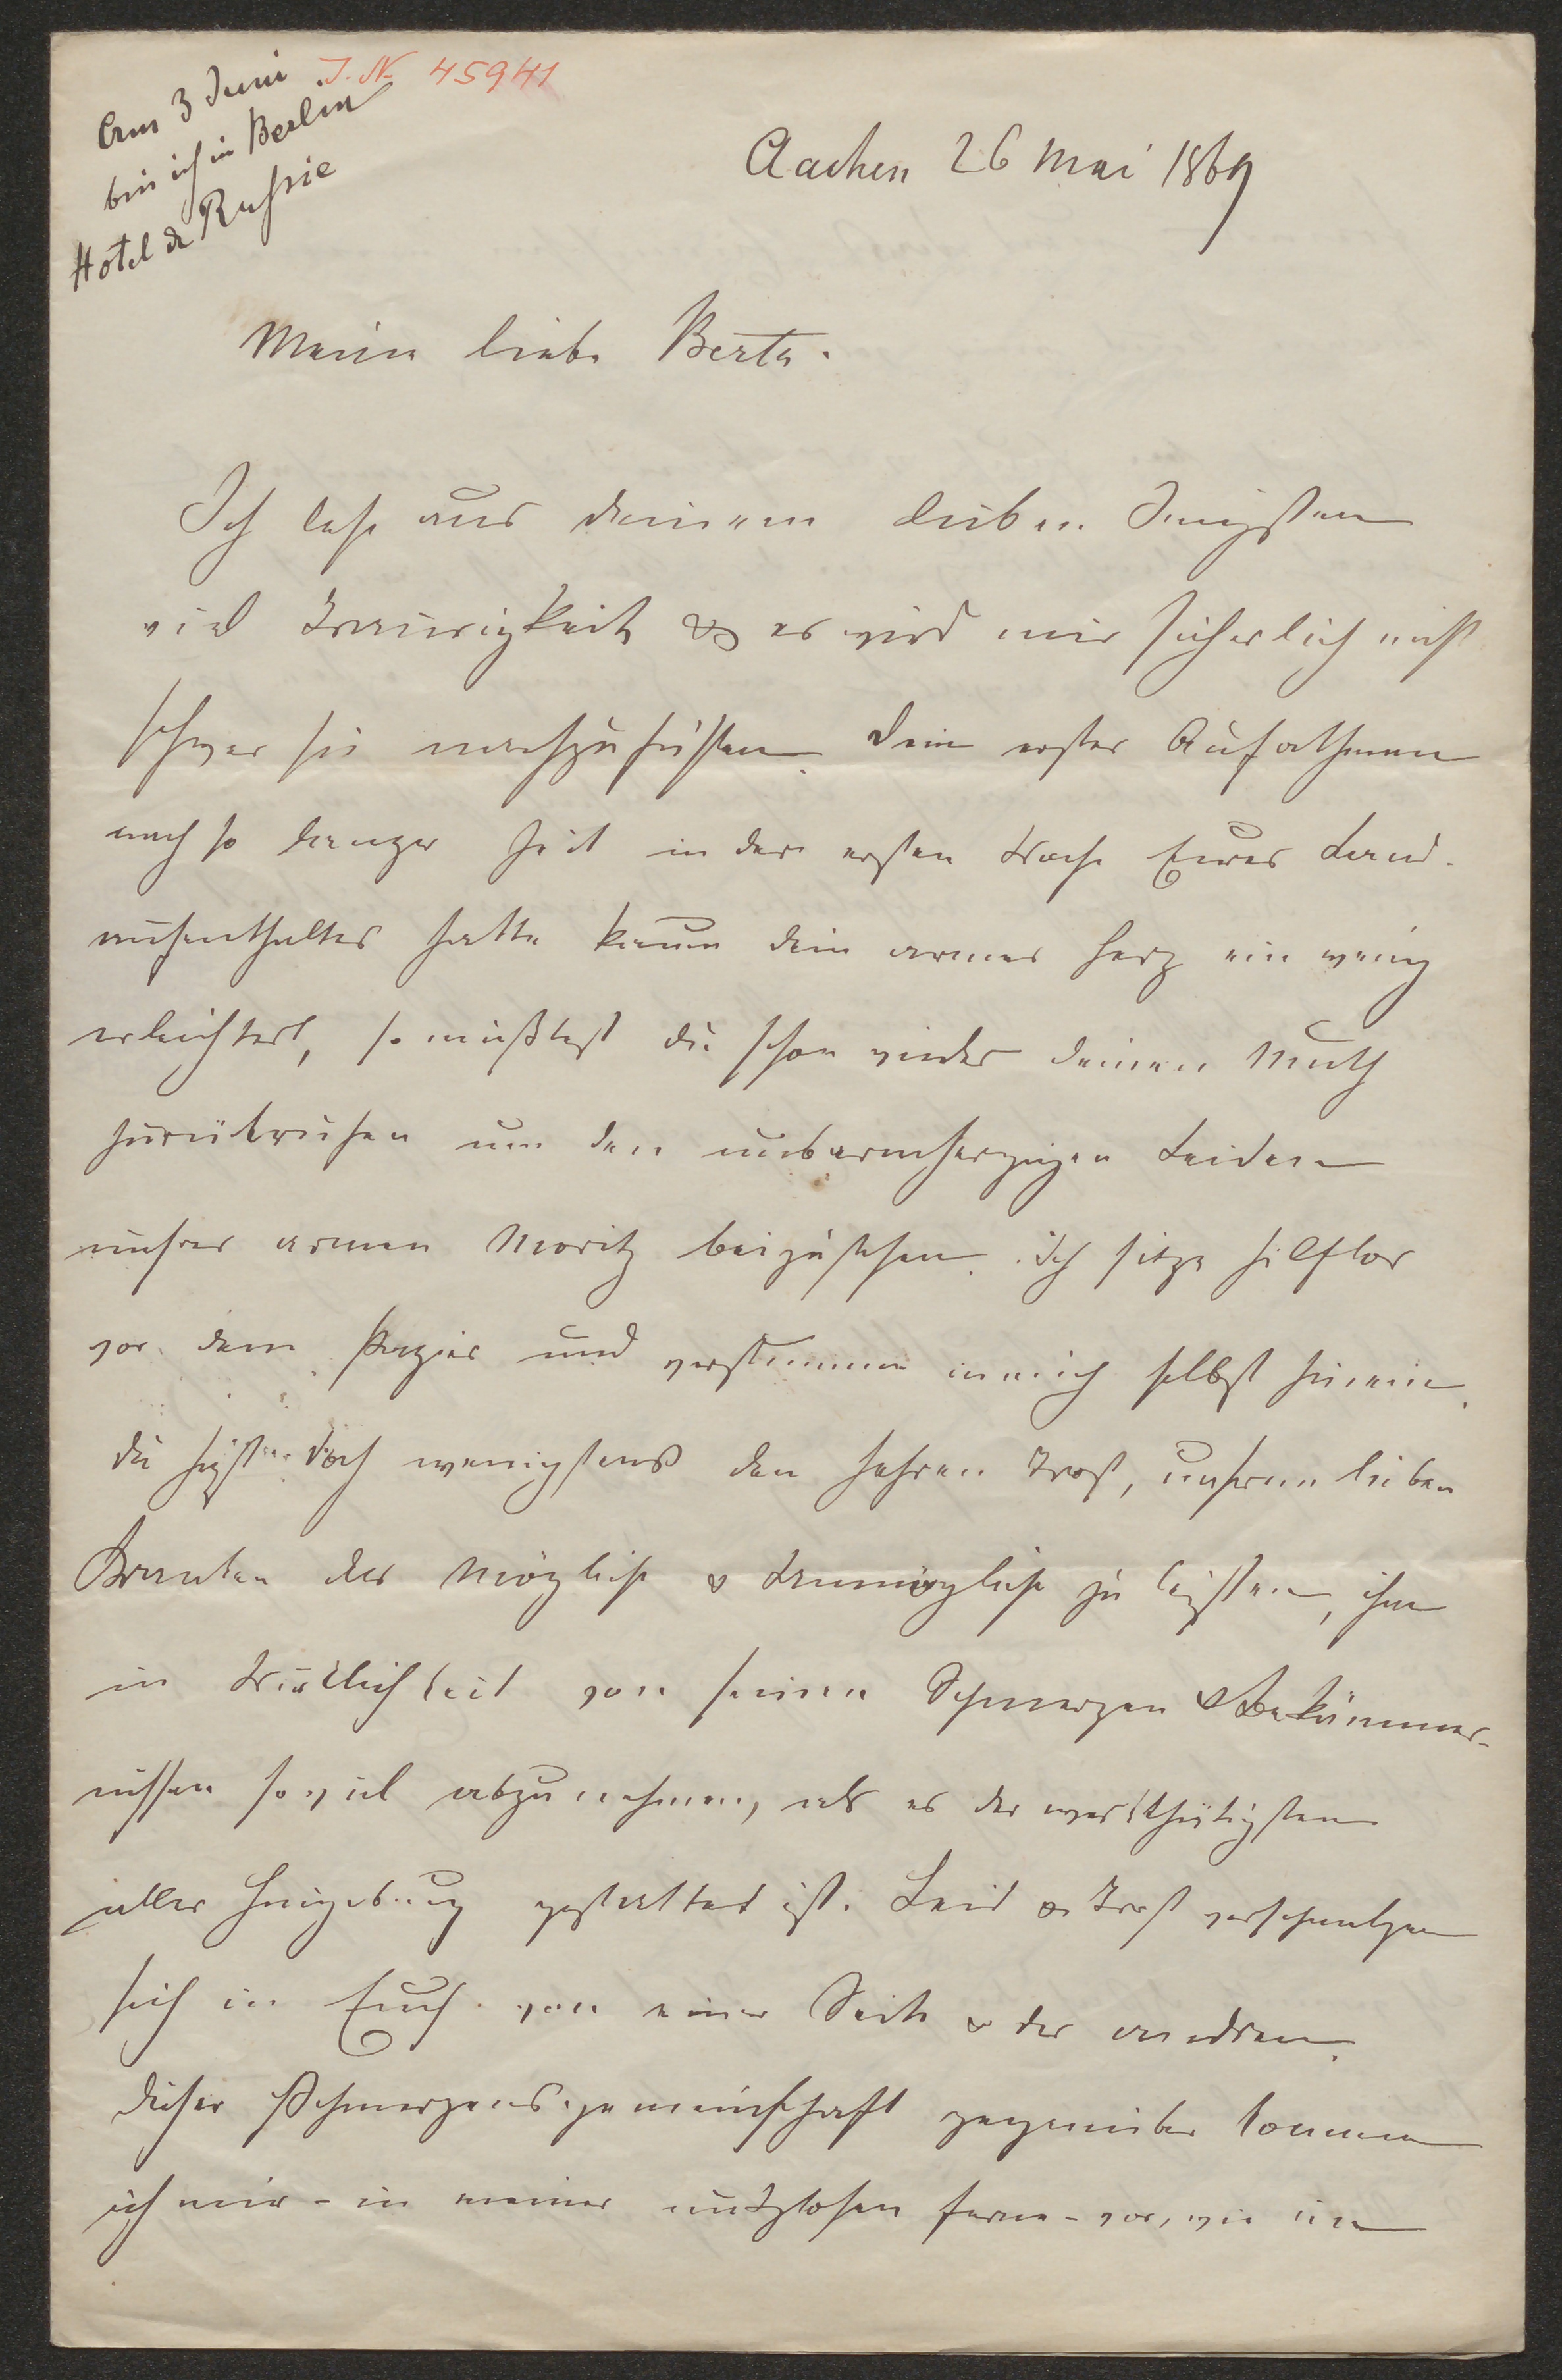 Am 3 Juni
bin ich in Berlin
Hôtel de Russie
J. N. 45941
Aachen 26 Mai 1869
Meine liebe Berta.
Ich lese aus deinem lieben Jüngsten
viel Traurigkeit & es wird mir sicherlich nicht
schwer sie nachzufühlen. Dein erster Aufathmen
nach so banger Zeit in der ersten Woche Eures Land-
aufenthaltes hatte kaum dein armes Herz ein wenig
erleichtert, so mußtest du schon wieder deinen Muth
zurückrufen um den unbarmherzigen Leiden
unsres armen Moritz beizustehen. Ich sitze hilflos
vor dem Papier und verstumme in mich selbst hinein.
Du hast doch wenigstens den hehren Trost, unserem lieben
Kranken das Mögliche & Unmögliche zu leisten, ihm
in Wirklichkeit von seinen Schmerzen & Bekümmer-
nissen so viel abzunehmen, als es der werkthätigsten
aller Hingebung gestattet ist. Leid & Trost verschmelzen
sich in Euch von einer Seite & der andren.
Dieser Schmerzensgemeinschaft gegenüber komme
ich mir - in meiner nutzlosen Ferne - vor, wie ein